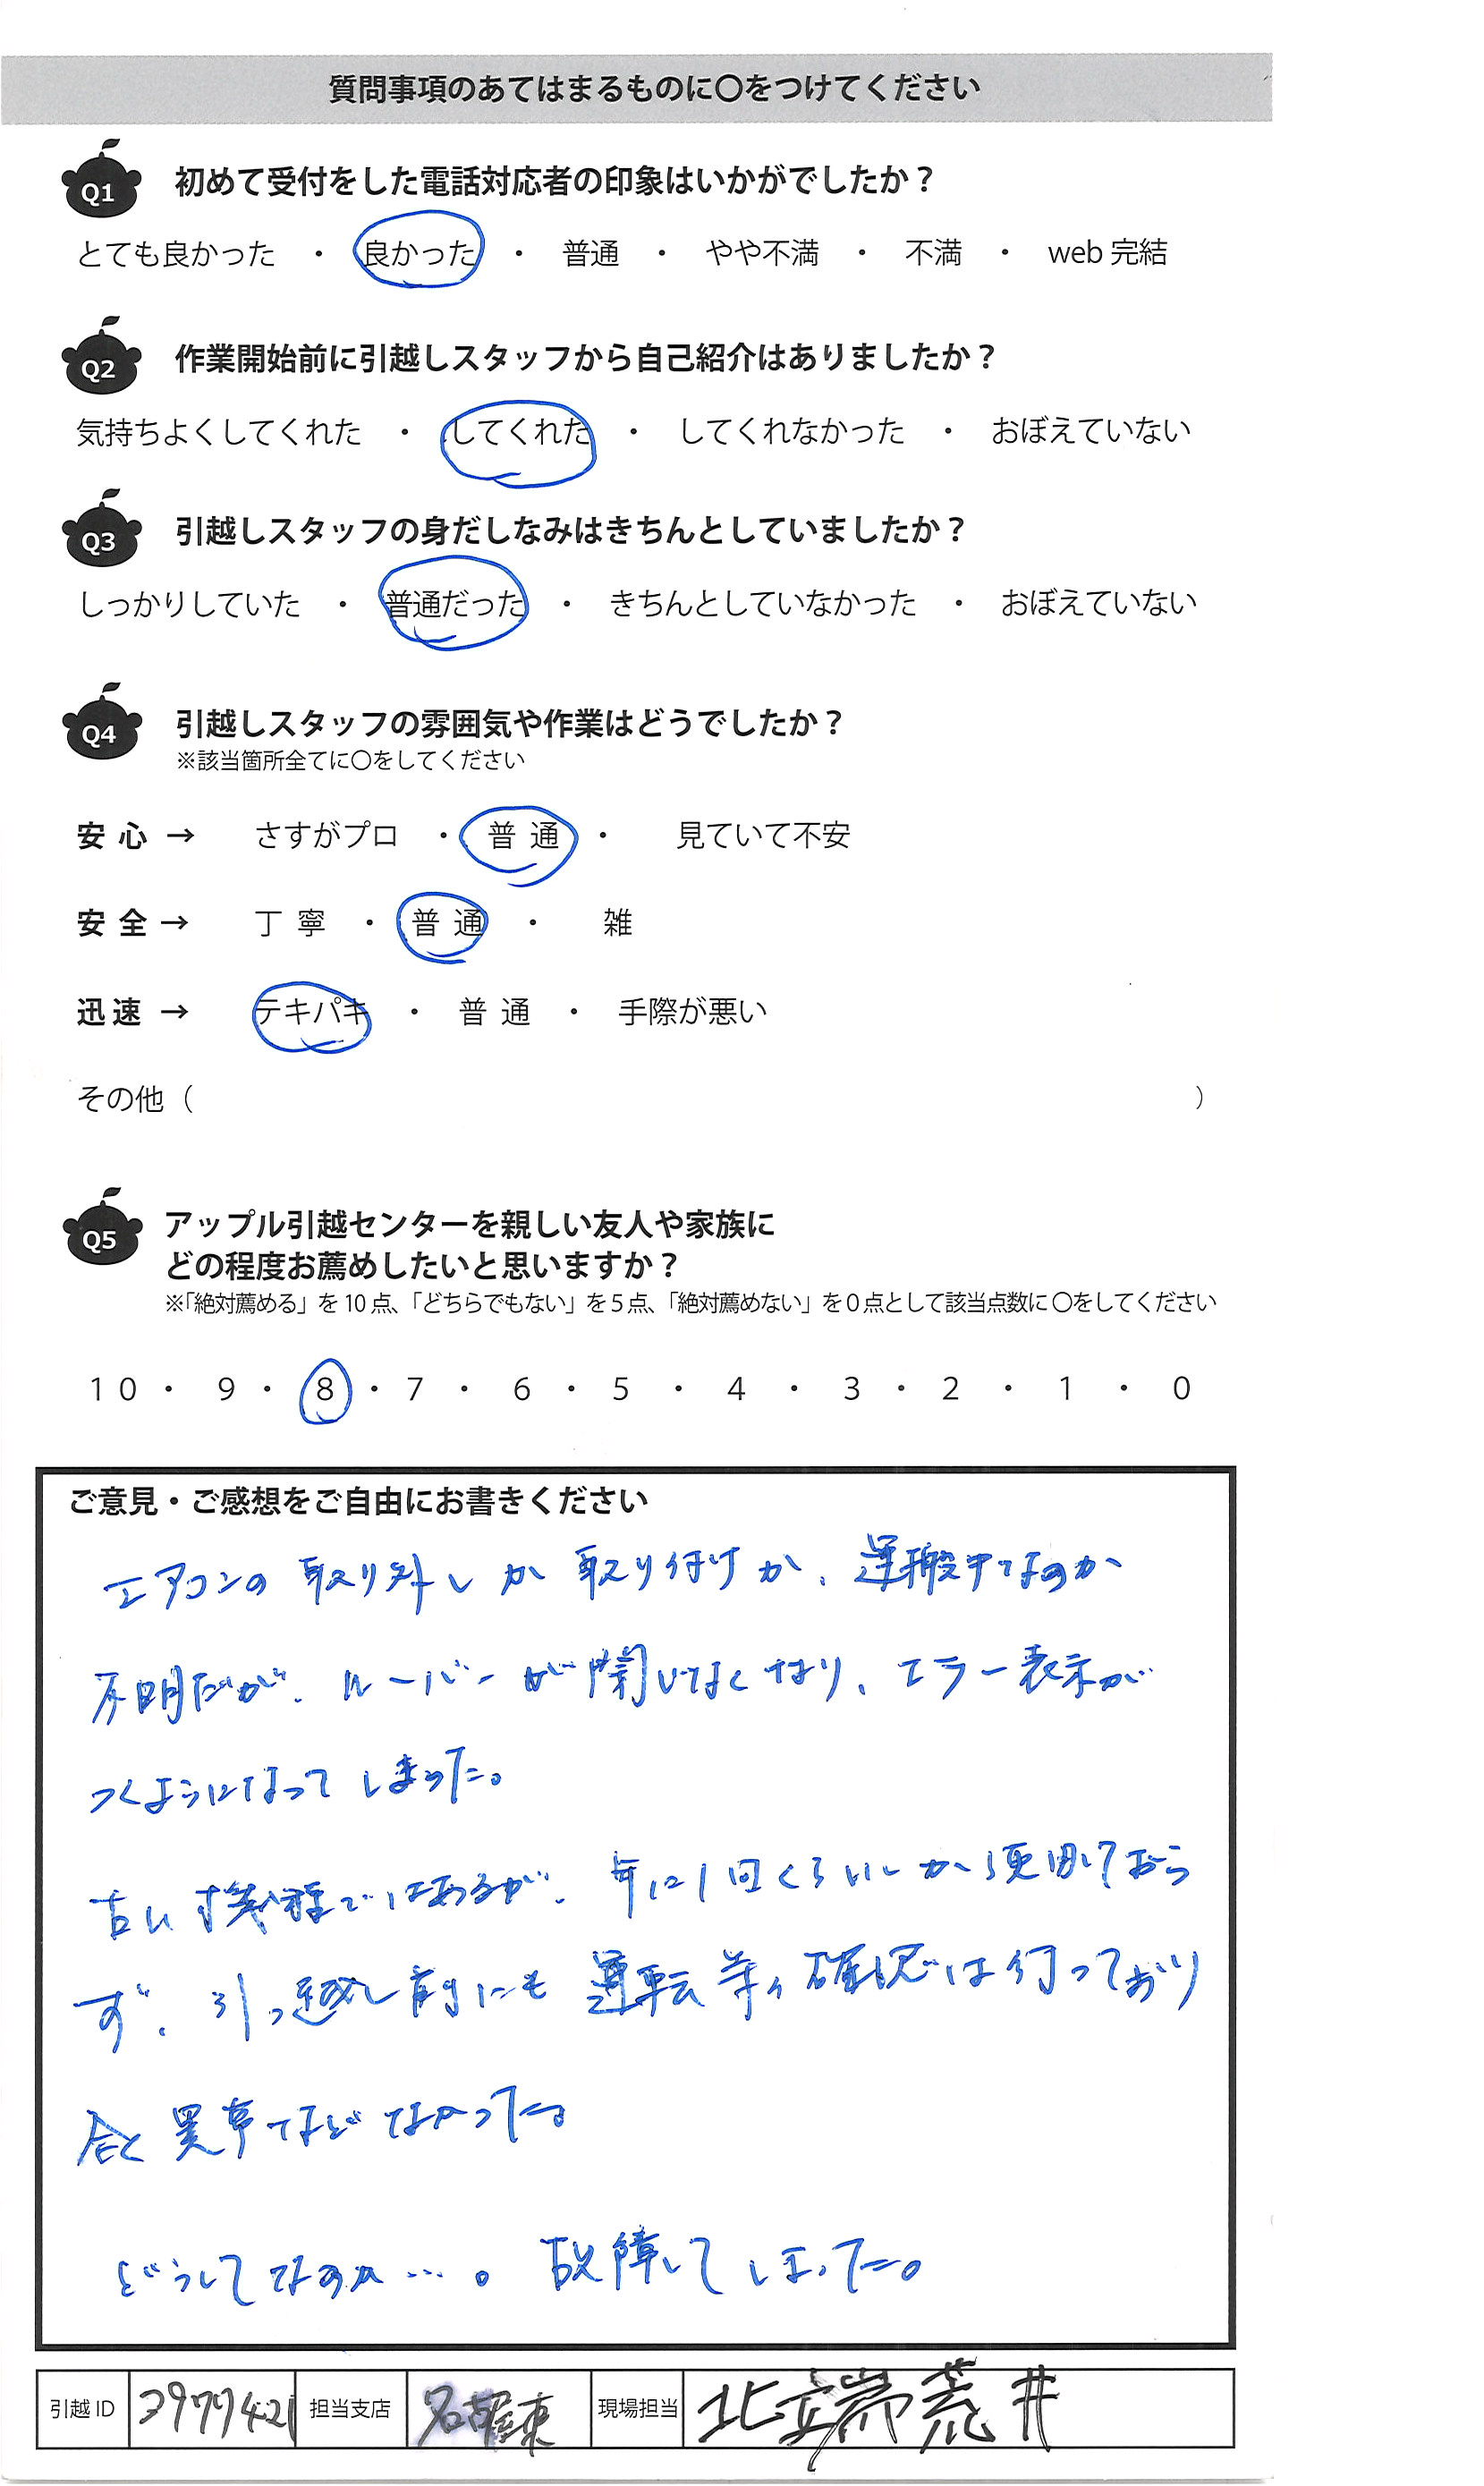 質問事項のあてはまるものに〇をつけてください
Q1 初めて受付をした電話対応者の印象はいかがでしたか？
とても良かった ・ 良かった ・ 普通 ・ やや不満 ・ 不満 ・ web 完結
Q2 作業開始前に引越しスタッフから自己紹介はありましたか？
気持ちよくしてくれた ・ してくれた ・ してくれなかった ・ おぼえていない
Q3 引越しスタッフの身だしなみはきちんとしていましたか？
しっかりしていた ・ 普通だった ・ きちんとしていなかった ・ おぼえていない
Q4 引越しスタッフの雰囲気や作業はどうでしたか？
※該当箇所全てに〇をしてください
安心 → さすがプロ ・ 普通 ・ 見ていて不安
安全 → 丁寧 ・ 普通 ・ 雑
迅速 → テキパキ ・ 普通 ・ 手際が悪い
その他（ ）
Q5 アップル引越センターを親しい友人や家族に
どの程度お薦めしたいと思いますか？
※「絶対薦める」を10点、「どちらでもない」を5点、「絶対薦めない」を0点として該当点数に〇をしてください
10 ・ 9 ・ 8 ・ 7 ・ 6 ・ 5 ・ 4 ・ 3 ・ 2 ・ 1 ・ 0
ご意見・ご感想をご自由にお書きください
エアコンの取り外しか取り付けか、運搬中なのか
不明だが、ルーバーが開じなくなり、エラー表示が
つくようになってしまった。
古い機種ではあるが、年に1回くらいしか使用しておら
ず、引っ越し前にも運転等の確認は行っており
全く異常などなかった。
どうしてなのか…。故障してしまった。
引越ID 3977421 担当支店 名古屋東 現場担当 北端 荒井